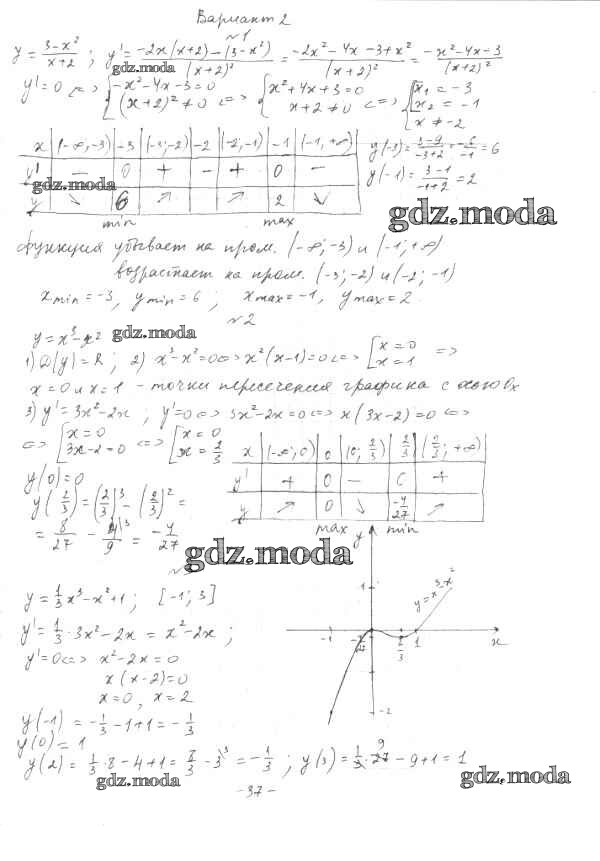 Вариант 2
№1
y = (3-x²)/(x+2) ; y' = (-2x(x+2)-(3-x²))/(x+2)² = (-2x²-4x-3+x²)/(x+2)² = (-x²-4x-3)/(x+2)²
gdz.moda
y'=0 <=> { -x²-4x-3=0 (x+2)²≠0 <=> { x²+4x+3=0 x+2≠0 <=> { [ x₁=-3 x₂=-1 x≠-2
x | (-∞;-3) | -3 | (-3;-2) | -2 | (-2;-1) | -1 | (-1;+∞)
y' | - | 0 | + | - | + | 0 | -
y | ↘ | 6 | ↗ | | ↗ | 2 | ↘
min max
y(-3) = (3-9)/(-3+2) = -6/-1 = 6
y(-1) = (3-1)/(-1+2) = 2
gdz.moda
gdz.moda
функция убывает на пром. (-∞;-3) и (-1;+∞)
возрастает на пром. (-3;-2) и (-2;-1)
xmin=-3, ymin=6 ; xmax=-1, ymax=2
№2
y=x³-x²
gdz.moda
1) D(y)=R ; 2) x³-x²=0 <=> x²(x-1)=0 <=> [ x=0 x=1 =>
x=0 и x=1 - точки пересечения графика с осью Ox
3) y'=3x²-2x ; y'=0 <=> 3x²-2x=0 <=> x(3x-2)=0 <=>
<=> [ x=0 3x-2=0 <=> [ x=0 x=2/3
x | (-∞;0) | 0 | (0;2/3) | 2/3 | (2/3;+∞)
y' | + | 0 | - | 0 | +
y | ↗ | 0 | ↘ | -4/27 | ↗
max min
y(0)=0
y(2/3) = (2/3)³ - (2/3)² =
= 8/27 - 4/9 = -4/27
gdz.moda
y
1
y=x³-x²
-1
2/3
1
x
-2
y = 1/3 x³-x²+1 ; [-1;3]
y' = 1/3·3x²-2x = x²-2x ;
y'=0 <=> x²-2x=0
x(x-2)=0
x=0, x=2
y(-1) = -1/3-1+1 = -1/3
y(0)=1
y(2) = 1/3·8-4+1 = 8/3-3 = -1/3 ; y(3) = 1/3·27-9+1=1
gdz.moda
gdz.moda
-37-